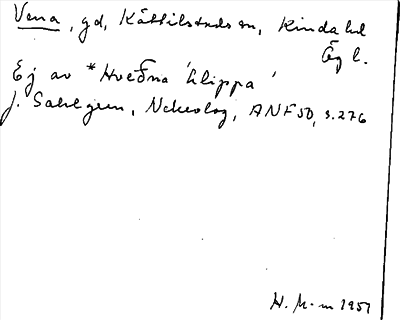 Vena, gd, Kättilstads sn, Kinda hd
Ög l.
Ej av *Hveðna 'klippa'
J. Sahlgren, Nekrolog, ANF 50, s. 276
H. M-m 1951